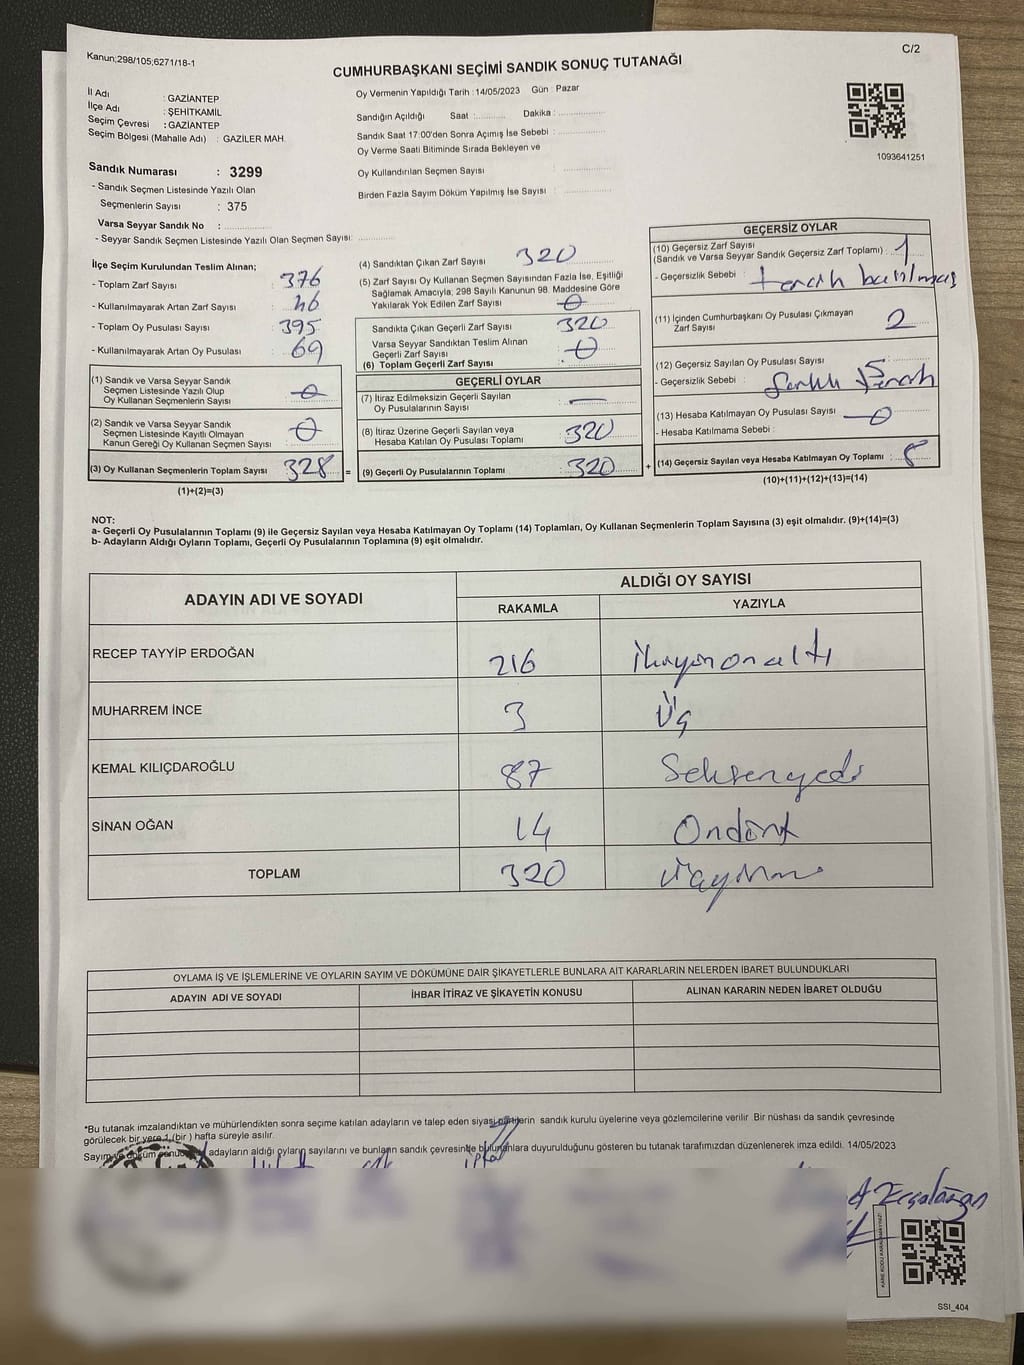 Kanun;298/105;6271/18-1
C/2
CUMHURBAŞKANI SEÇİMİ SANDIK SONUÇ TUTANAĞI
İl Adı : GAZİANTEP
İlçe Adı : ŞEHİTKAMİL
Seçim Çevresi : GAZİANTEP
Seçim Bölgesi (Mahalle Adı) : GAZİLER MAH.
Oy Vermenin Yapıldığı Tarih : 14/05/2023 Gün : Pazar
Sandığın Açıldığı Saat : Dakika :
Sandık Saat 17:00'den Sonra Açımış İse Sebebi :
Oy Verme Saati Bitiminde Sırada Bekleyen ve
Oy Kullandırılan Seçmen Sayısı
Birden Fazla Sayım Döküm Yapılmış İse Sayısı
1093641251
Sandık Numarası : 3299
- Sandık Seçmen Listesinde Yazılı Olan
Seçmenlerin Sayısı : 375
Varsa Seyyar Sandık No :
- Seyyar Sandık Seçmen Listesinde Yazılı Olan Seçmen Sayısı:
İlçe Seçim Kurulundan Teslim Alınan;
- Toplam Zarf Sayısı : 376
- Kullanılmayarak Artan Zarf Sayısı : 46
- Toplam Oy Pusulası Sayısı : 395
- Kullanılmayarak Artan Oy Pusulası : 69
(1) Sandık ve Varsa Seyyar Sandık
Seçmen Listesinde Yazılı Olup
Oy Kullanan Seçmenlerin Sayısı : 0
(2) Sandık ve Varsa Seyyar Sandık
Seçmen Listesinde Kayıtlı Olmayan
Kanun Gereği Oy Kullanan Seçmen Sayısı : 0
(3) Oy Kullanan Seçmenlerin Toplam Sayısı : 328 =
(1)+(2)=(3)
(4) Sandıktan Çıkan Zarf Sayısı 320
(5) Zarf Sayısı Oy Kullanan Seçmen Sayısından Fazla İse, Eşitliği
Sağlamak Amacıyla, 298 Sayılı Kanunun 98. Maddesine Göre
Yakılarak Yok Edilen Zarf Sayısı 0
Sandıkta Çıkan Geçerli Zarf Sayısı 320
Varsa Seyyar Sandıktan Teslim Alınan
Geçerli Zarf Sayısı 0
(6) Toplam Geçerli Zarf Sayısı :
GEÇERLİ OYLAR
(7) İtiraz Edilmeksizin Geçerli Sayılan
Oy Pusulalarının Sayısı : —
(8) İtiraz Üzerine Geçerli Sayılan veya
Hesaba Katılan Oy Pusulası Toplamı : 320
(9) Geçerli Oy Pusulalarının Toplamı : 320 +
GEÇERSİZ OYLAR
(10) Geçersiz Zarf Sayısı
(Sandık ve Varsa Seyyar Sandık Geçersiz Zarf Toplamı) : 1
- Geçersizlik Sebebi : tercih
(11) İçinden Cumhurbaşkanı Oy Pusulası Çıkmayan
Zarf Sayısı : 2
(12) Geçersiz Sayılan Oy Pusulası Sayısı : 5
- Geçersizlik Sebebi : Farklı
(13) Hesaba Katılmayan Oy Pusulası Sayısı : 0
- Hesaba Katılmama Sebebi :
(14) Geçersiz Sayılan veya Hesaba Katılmayan Oy Toplamı : 8
(10)+(11)+(12)+(13)=(14)
NOT:
a- Geçerli Oy Pusulalarının Toplamı (9) ile Geçersiz Sayılan veya Hesaba Katılmayan Oy Toplamı (14) Toplamları, Oy Kullanan Seçmenlerin Toplam Sayısına (3) eşit olmalıdır. (9)+(14)=(3)
b- Adayların Aldığı Oyların Toplamı, Geçerli Oy Pusulalarının Toplamına (9) eşit olmalıdır.
ADAYIN ADI VE SOYADI ALDIĞI OY SAYISI
RAKAMLA YAZIYLA
RECEP TAYYİP ERDOĞAN 216 İkiyüzonaltı
MUHARREM İNCE 3 Üç
KEMAL KILIÇDAROĞLU 87 Seksenyedi
SİNAN OĞAN 14 Ondört
TOPLAM 320
OYLAMA İŞ VE İŞLEMLERİNE VE OYLARIN SAYIM VE DÖKÜMÜNE DAİR ŞİKAYETLERLE BUNLARA AİT KARARLARIN NELERDEN İBARET BULUNDUKLARI
ADAYIN ADI VE SOYADI İHBAR İTİRAZ VE ŞİKAYETİN KONUSU ALINAN KARARIN NEDEN İBARET OLDUĞU
*Bu tutanak imzalandıktan ve mühürlendikten sonra seçime katılan adayların ve talep eden siyasi partilerin sandık kurulu üyelerine veya gözlemcilerine verilir. Bir nüshası da sandık çevresinde
görülecek bir yere 1 (bir ) hafta süreyle asılır.
Sayım ve döküm adayların aldığı oyların sayılarını ve bunların sandık çevresinde bulunanlara duyurulduğunu gösteren bu tutanak tarafımızdan düzenlenerek imza edildi. 14/05/2023
SSI_404